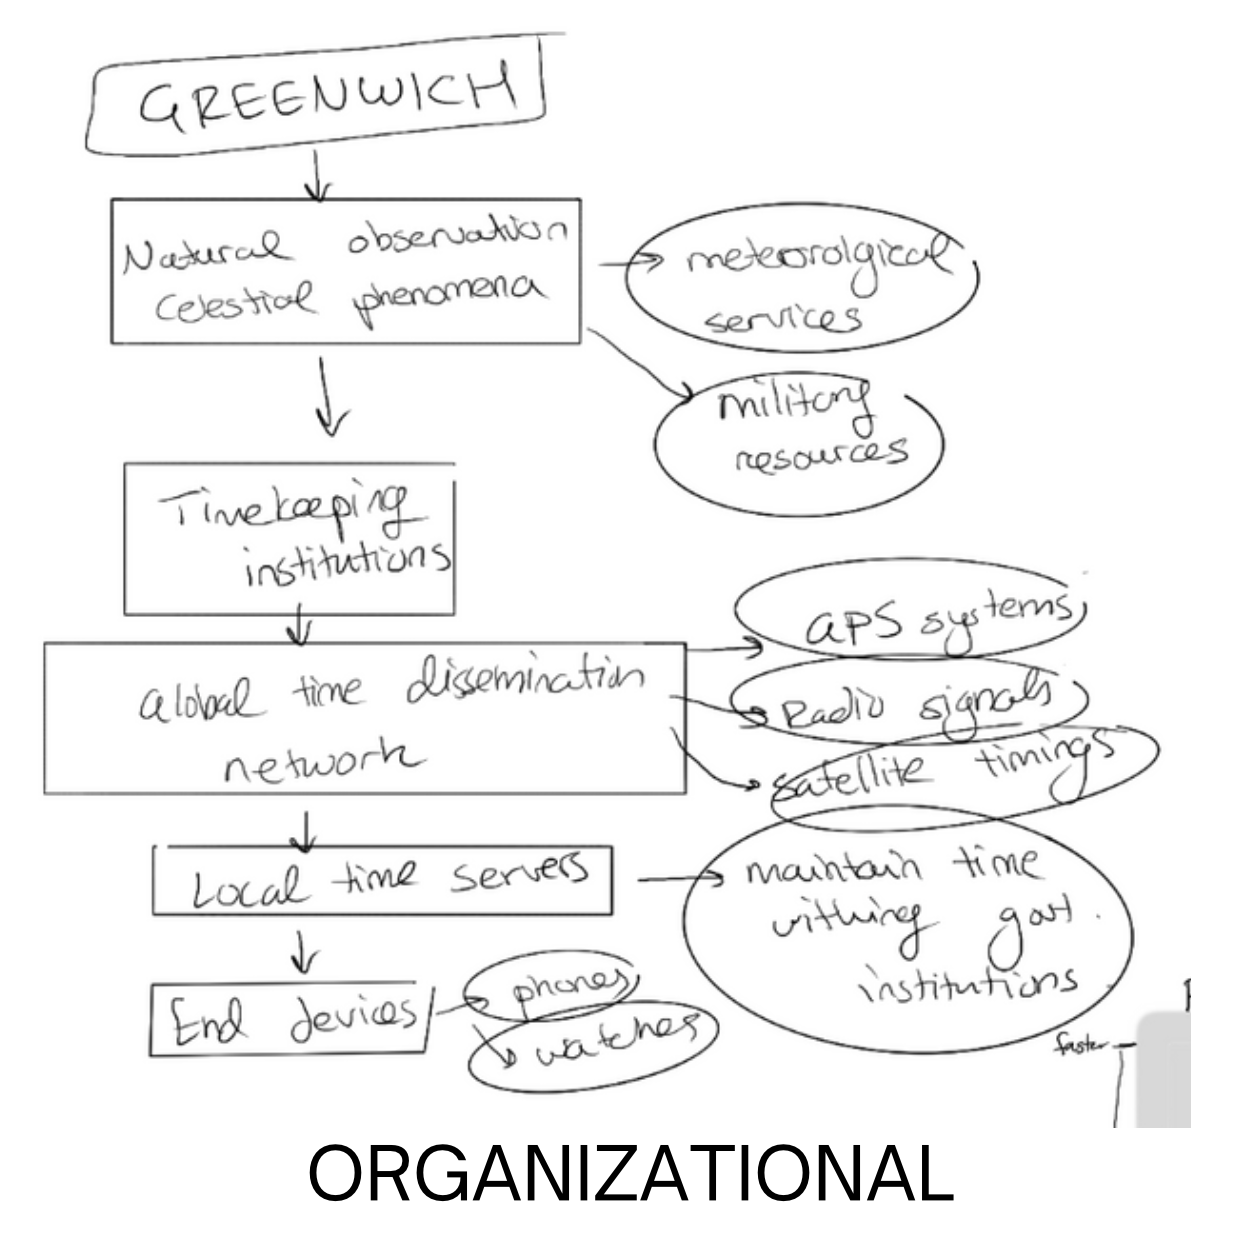 GREENWICH
Natural observation
Celestial phenomena
meteorolgical
services
military
resources
Timekeeping
institutions
GPS systems
Global time dissemination
network
Radio signals
satellite timings
Local time servers
maintain time
withing govt.
institutions
End devices
phones
watches
faster
ORGANIZATIONAL